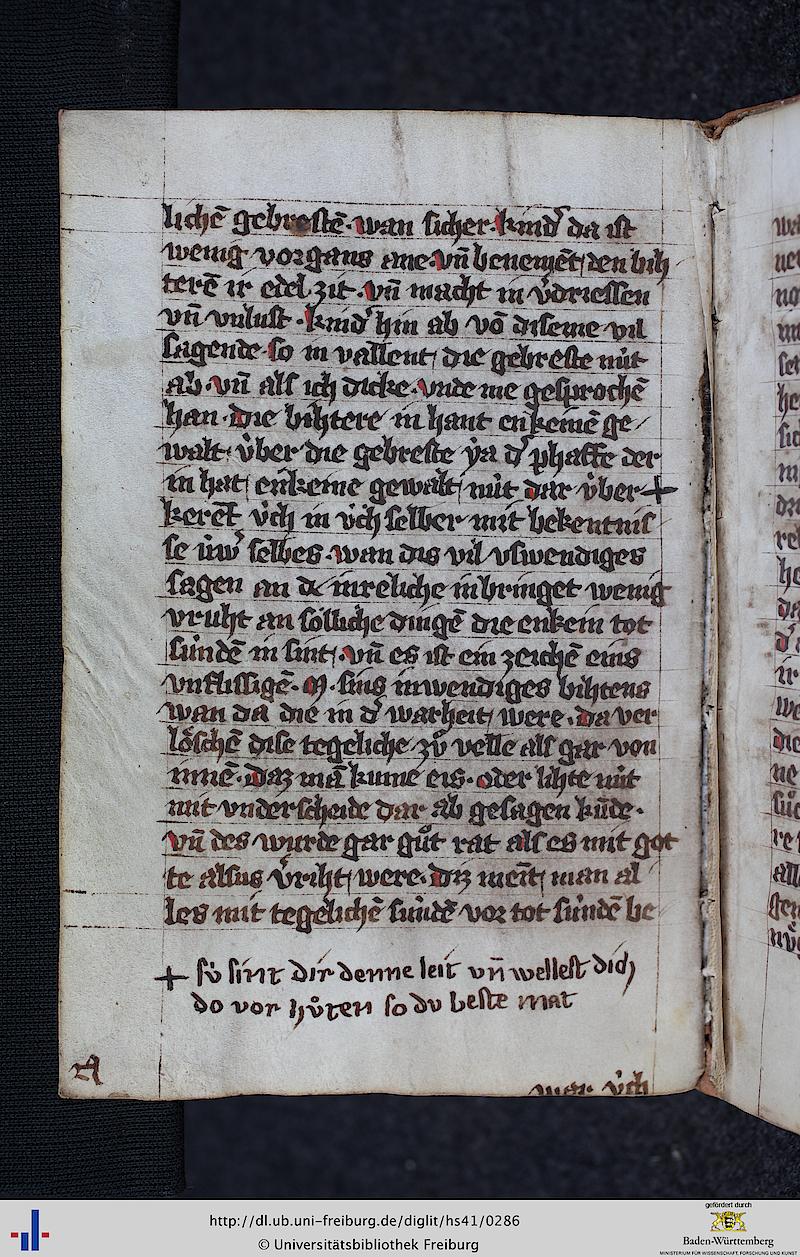 lichē gebrestē. wan sicher. kind᷑ da ist
wenig vorgans ane. vn̄ benemēt den bih
terē ir edel zit. vn̄ macht in v᷑driessen
vn̄ vnlust. kind᷑ hin ab vō diseme vil
sagende. so in vallent die gebreste nút
ab. vn̄ als ich dicke. vnde me gesprochē
han. die bihtere in hant enkeinē ge
walt. v́ber die gebreste ẏa d᷑ phaffe der
in hat enkeine gewalt nút dar v́ber +
kerēt v́ch in v́ch selber mit bekentnis
se úw᷑ selbes. wan dis vil vswendiges
sagen an dc inreliche in bringet wenig
vruht an sólliche dingē die enkein tot
súndē in sint. vn̄ es ist ein zeichē eins
vnflissigē. M. sins inwendiges bihtens
wan da die in d᷑ warheit were. da ver
lóschē dise tegeliche zů velle als gar von
innē. daz mā kume eis. oder lihte nút
mit vnderscheide dar ab gesagen kúde.
vn̄ des wurde gar gůt rat als es mit got
te alsus v᷑riht were. diz meīt man al
les mit tegelichē súndē vor tot súndē be
+ sú sint dir denne leit vn̄ wellest dich
do vor hůten so dv beste mat
A
v́ch
wa
http://dl.ub.uni-freiburg.de/diglit/hs41/0286
© Universitätsbibliothek Freiburg
gefördert durch
Baden-Württemberg
MINISTERIUM FÜR WISSENSCHAFT, FORSCHUNG UND KUNST